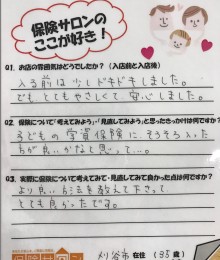 保険サロンの
ここが好き!
Q1. お店の雰囲気はどうでしたか?(入店前と入店後)
入る前は少しドキドキしました。
でもとてもやさしくて安心しました。
Q2. 保険について「考えてみよう」・「見直してみよう」と思ったきっかけは何ですか?
子どもの学資保険に、そろそろ入った
方が良いかなと思って...。
Q3. 実際に保険について考えてみて・見直してみて良かった点は何ですか?
より良い方法を教えて下さって
とても良かったです。
刈谷市 在住 (35歳)